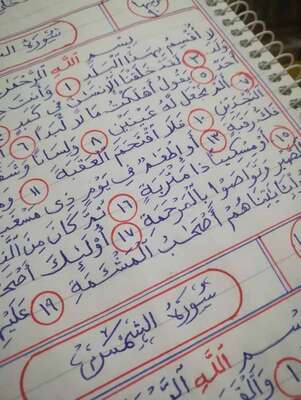 سُورَةُ
بِسْمِ اللَّهِ الرَّحْمَٰنِ
لَا أُقْسِمُ بِهَٰذَا الْبَلَدِ ١ وَأَنتَ
٣ لَقَدْ خَلَقْنَا الْإِنسَانَ فِي كَبَدٍ
٥ يَقُولُ أَهْلَكْتُ مَالًا لُّبَدًا ٦
٧ أَلَمْ نَجْعَل لَّهُ عَيْنَيْنِ ٨ وَلِسَانًا
النَّجْدَيْنِ ١٠ فَلَا اقْتَحَمَ الْعَقَبَةَ ١١
فَكُّ رَقَبَةٍ ١٣ أَوْ إِطْعَٰمٌ فِي يَوْمٍ ذِي
١٥ أَوْ مِسْكِينًا ذَا مَتْرَبَةٍ ١٦ ثُمَّ كَانَ مِنَ
وَتَوَاصَوْا بِالْمَرْحَمَةِ ١٧ أُولَٰئِكَ
هُمْ أَصْحَٰبُ الْمَشْئَمَةِ ١٩ عَلَيْهِمْ
سُورَةُ الشَّمْسِ
بِسْمِ اللَّهِ
١ وَالْقَمَرِ